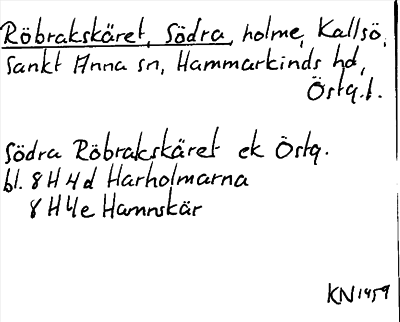 Röbrakskäret, Södra, holme, Kallsö,
Sankt Anna sn, Hammarkinds hd,
Östg.l.
Södra Röbrakskäret ek Östg.
bl. 8 H 4 d Harholmarna
8 H 4 e Hamnskär
KN 1459